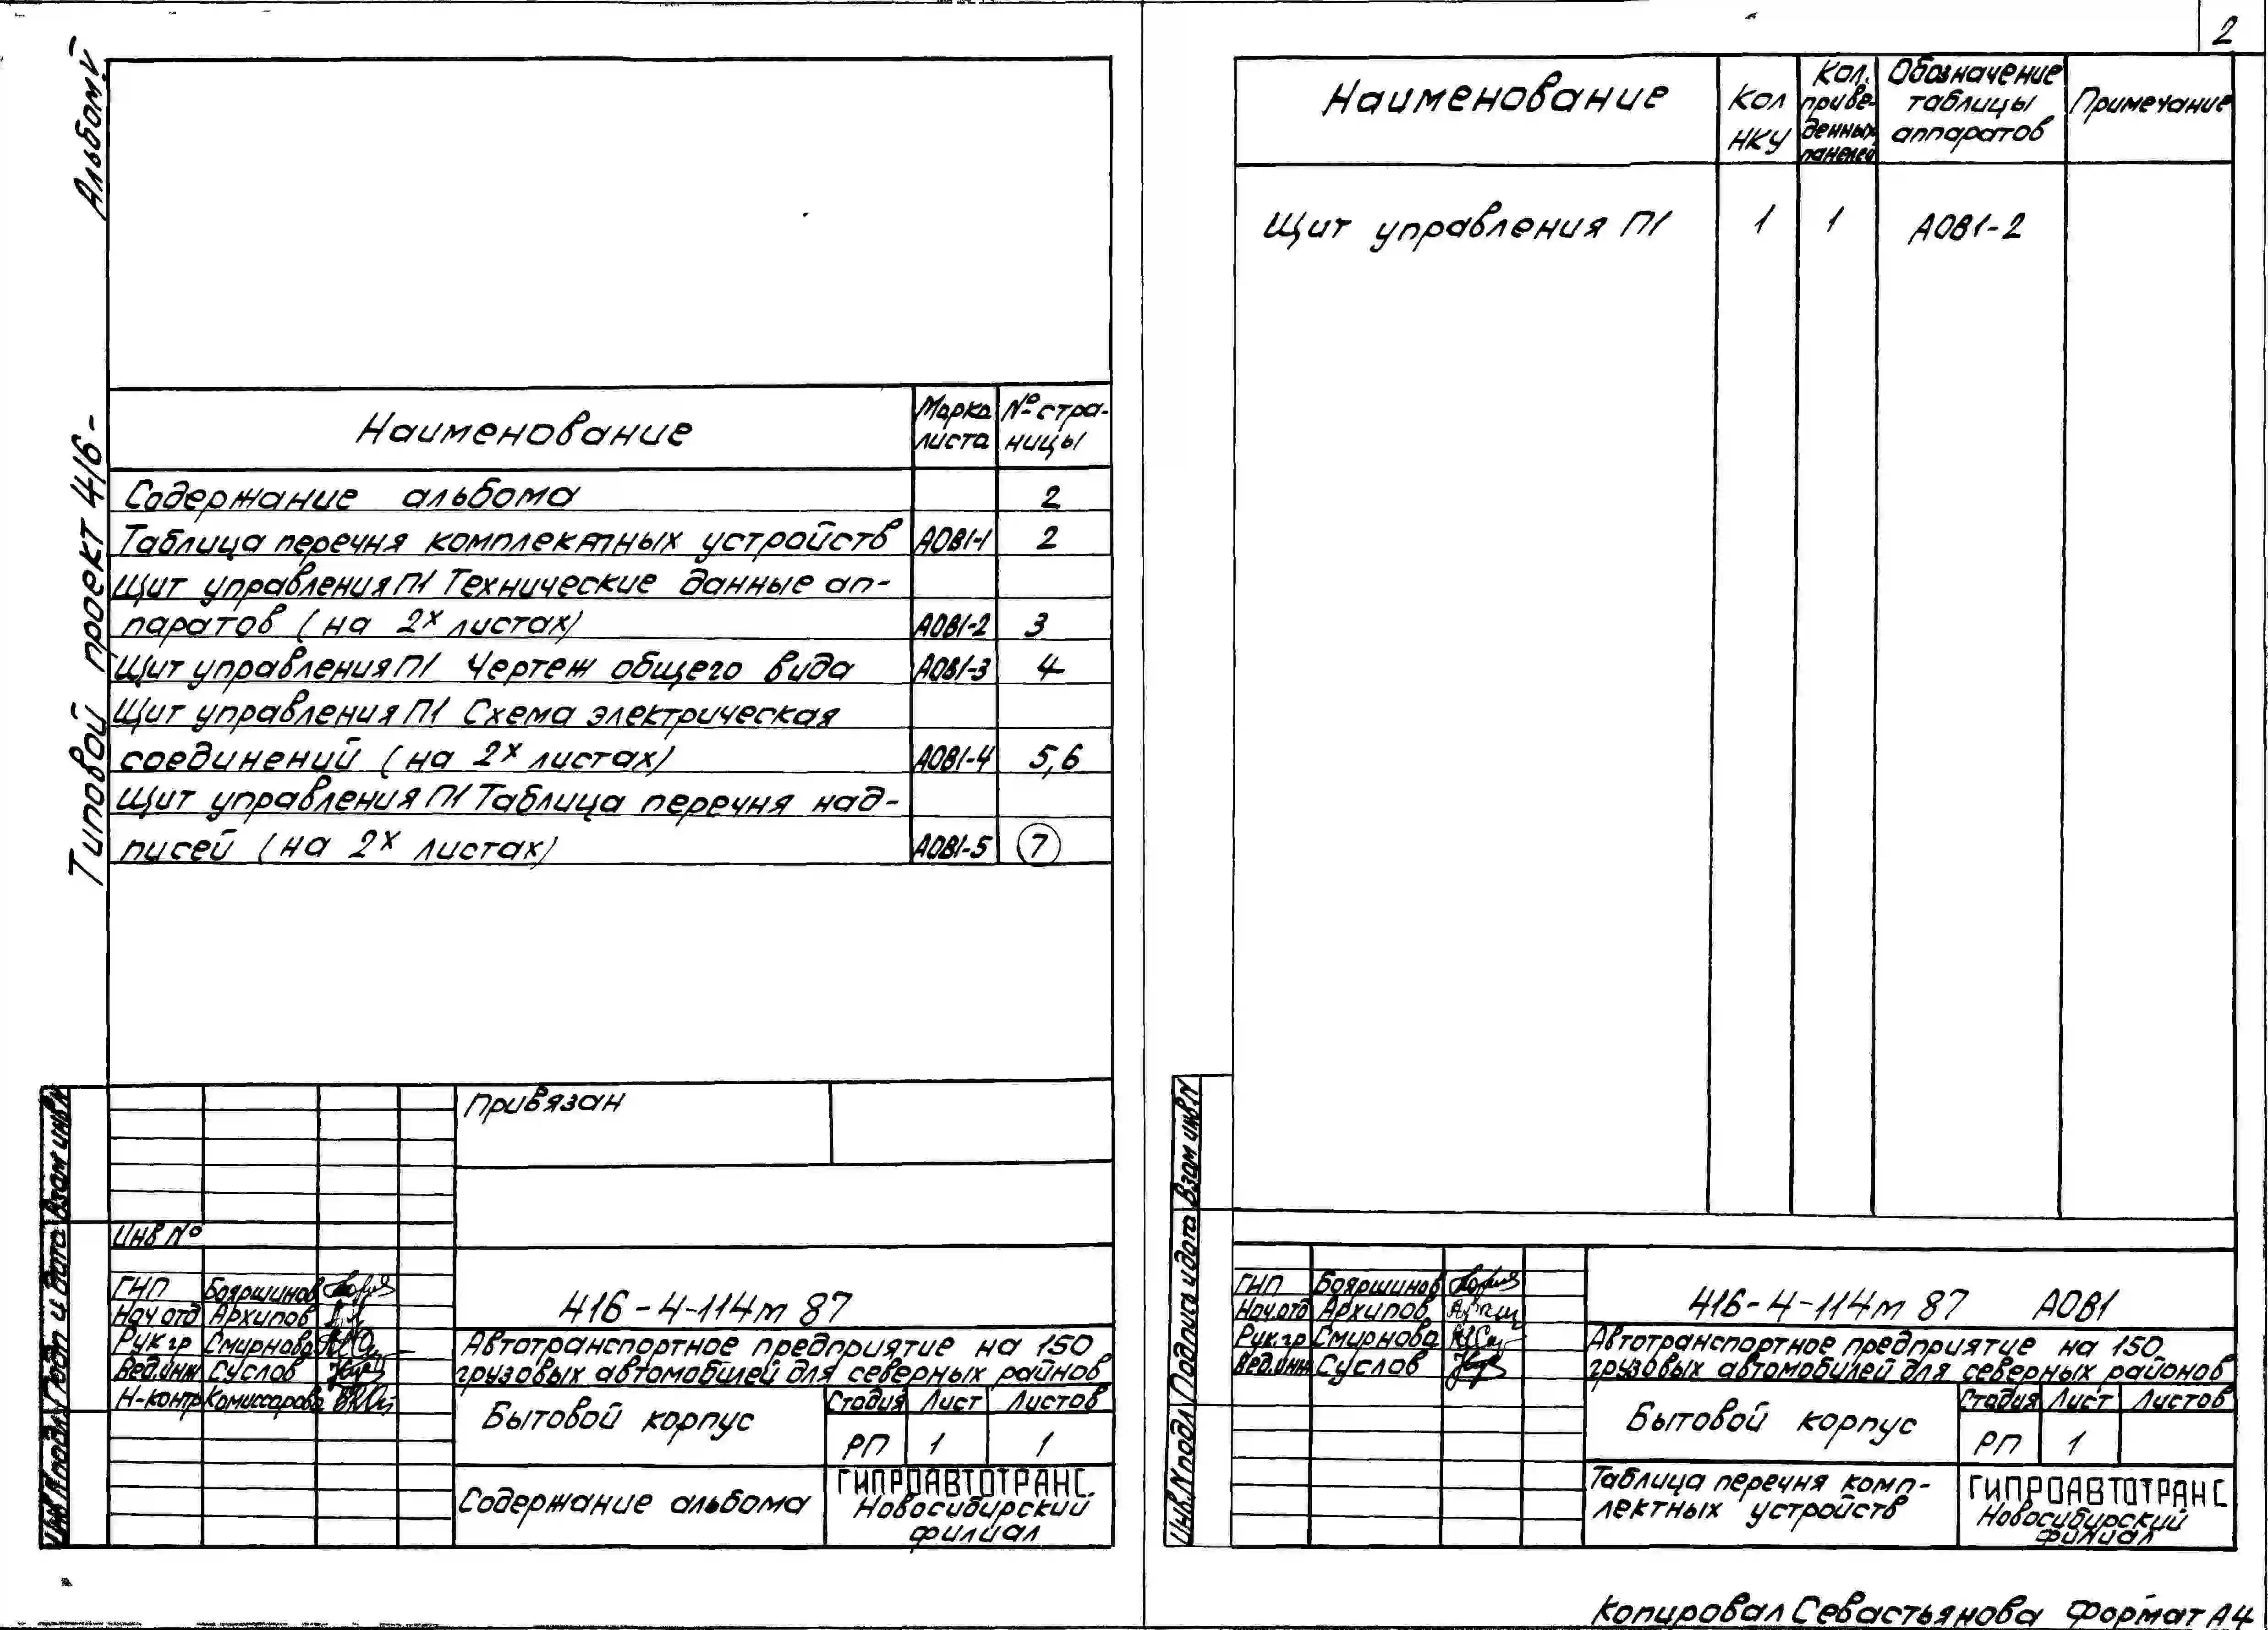 Альбом
Типовой проект 416-
Наименование
Марка листа
№ стра-
ницы
Содержание альбома 2
Таблица перечня комплектных устройств АОВ1-1 2
Щит управления П1 Технические данные ап-
паратов (на 2х листах) АОВ1-2 3
Щит управления П1 Чертеж общего вида АОВ1-3 4
Щит управления П1 Схема электрическая
соединений (на 2х листах) АОВ1-4 5,6
Щит управления П1 Таблица перечня над-
писей (на 2х листах) АОВ1-5 7
Привязан
Инв №
ГИП Бояршинов
Нач.отд Архипов
Рук.гр Смирнова
Вед.инж Суслов
Н-контр Комиссарова
416-4-114м 87
Автотранспортное предприятие на 150
грузовых автомобилей для северных районов
Бытовой корпус
Стадия Лист Листов
РП 1 1
Содержание альбома
ГИПРОАВТОТРАНС.
Новосибирский
филиал
Инв.№подл Подп и дата Взам инв№
2
Наименование
Кол
НКУ
Кол.
приве-
денных
панелей
Обозначение
таблицы
аппаратов
Примечание
Щит управления П1 1 1 АОВ1-2
Инв.№подл Подпись и дата Взам инв.№
ГИП Бояршинов
Нач.отд Архипов
Рук.гр Смирнова
Вед.инж Суслов
416-4-114м 87 АОВ1
Автотранспортное предприятие на 150
грузовых автомобилей для северных районов
Бытовой корпус
Стадия Лист Листов
РП 1
Таблица перечня комп-
лектных устройств
ГИПРОАВТОТРАНС
Новосибирский
филиал
Копировал Севастьянова Формат А4